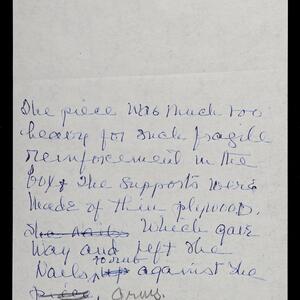 The piece was much too
heavy for such fragile
reinforcement in the
box & the supports were
made of thin plywood.
The nails which gave
way and left the
to rub
Nails, against the
piece, arms.